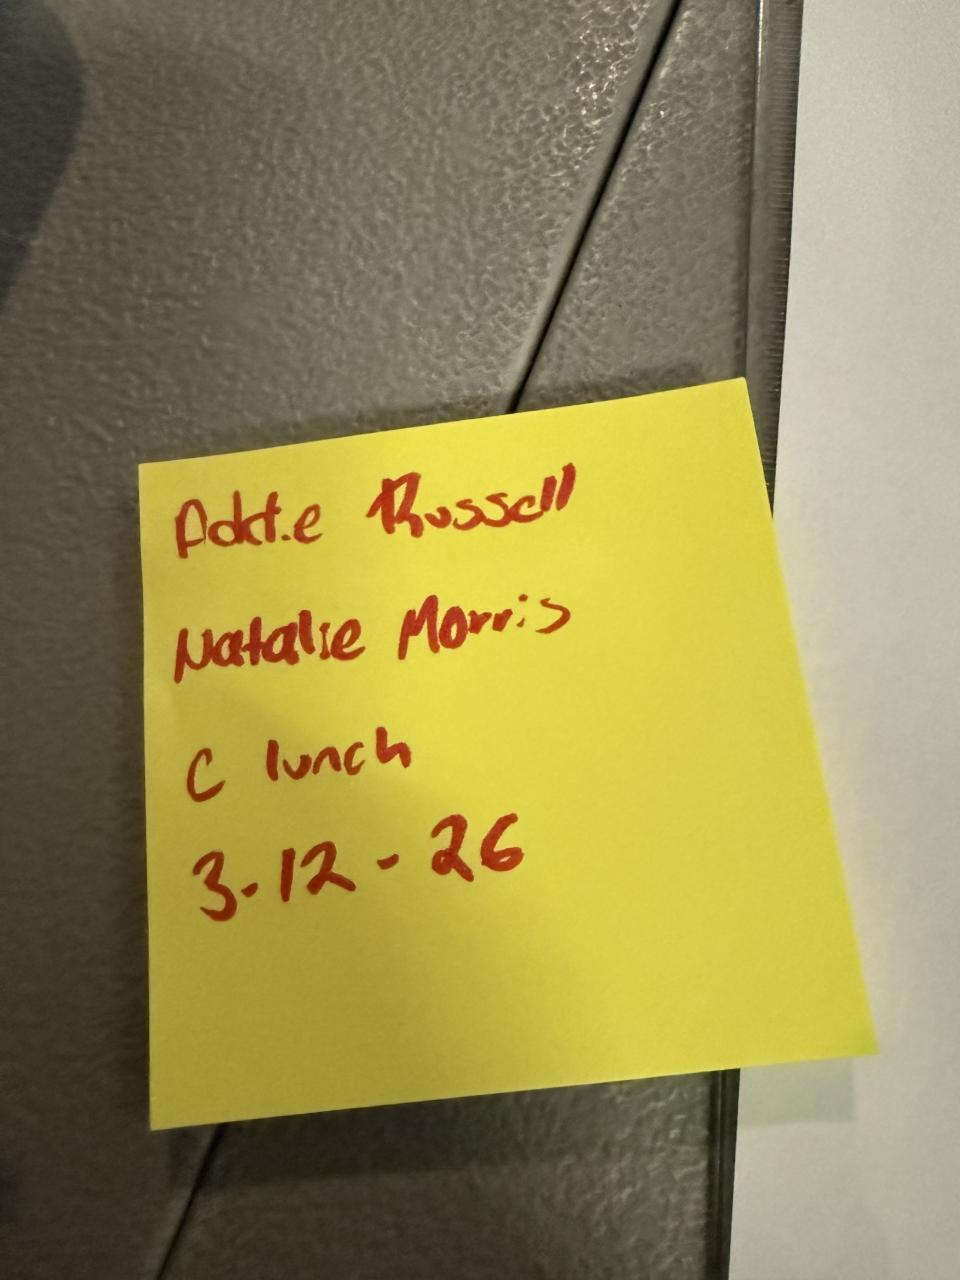 Addie Russell
Natalie Morris
C lunch
3-12-26